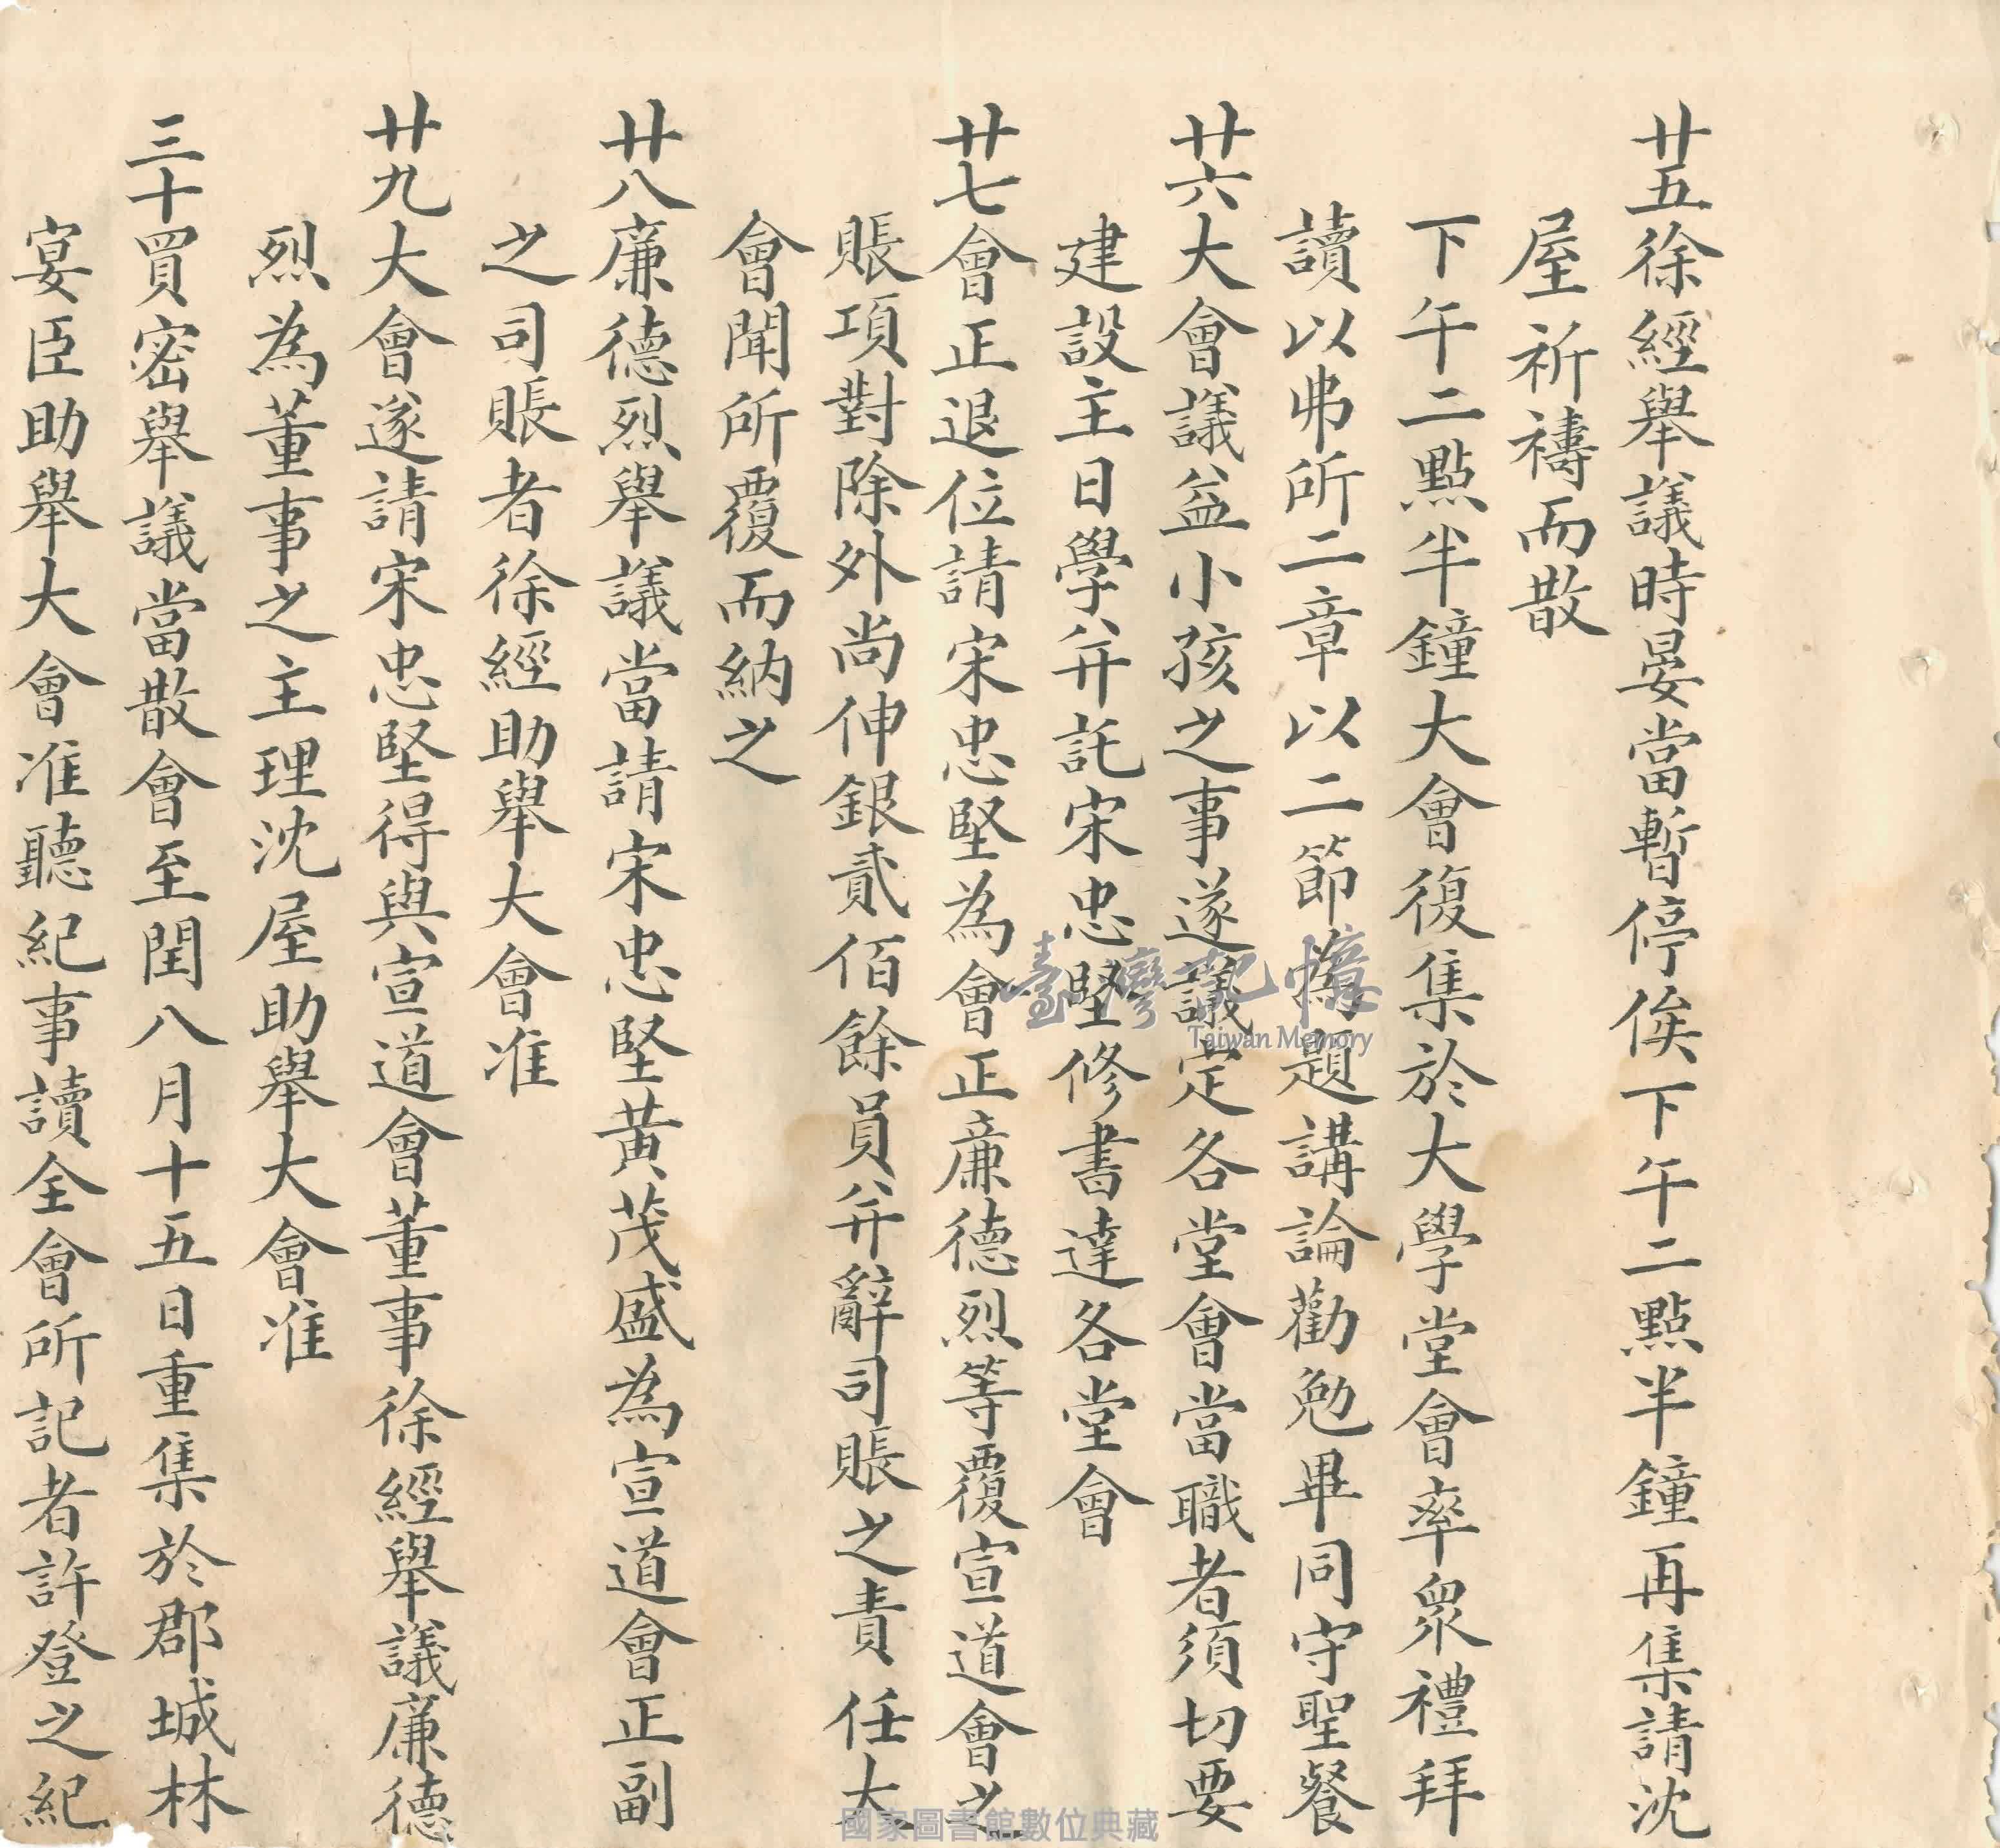 廿五徐經舉議時晏當暫停俟下午二點半鐘再集請沈
屋祈禱而散
下午二點半鐘大會復集於大學堂會率眾禮拜
讀以弗所二章以二節為題講論勸勉畢同守聖餐
廿六大會議益小孩之事遂議定各堂會當職者須切要
建設主日學并託宋忠堅修書達各堂會
廿七會正退位請宋忠堅為會正廉德烈等覆宣道會之
賬項對除外尚伸銀貳佰餘員并辭司賬之責任大
會聞所覆而納之
廿八廉德烈舉議當請宋忠堅黃茂盛為宣道會正副
之司賬者徐經助舉大會准
廿九大會遂請宋忠堅得與宣道會董事徐經舉議廉德
烈為董事之主理沈屋助舉大會准
三十買密舉議當散會至閏八月十五日重集於郡城林
宴臣助舉大會准聽紀事讀全會所記者許登之紀
臺灣記憶
Taiwan Memory
國家圖書館數位典藏